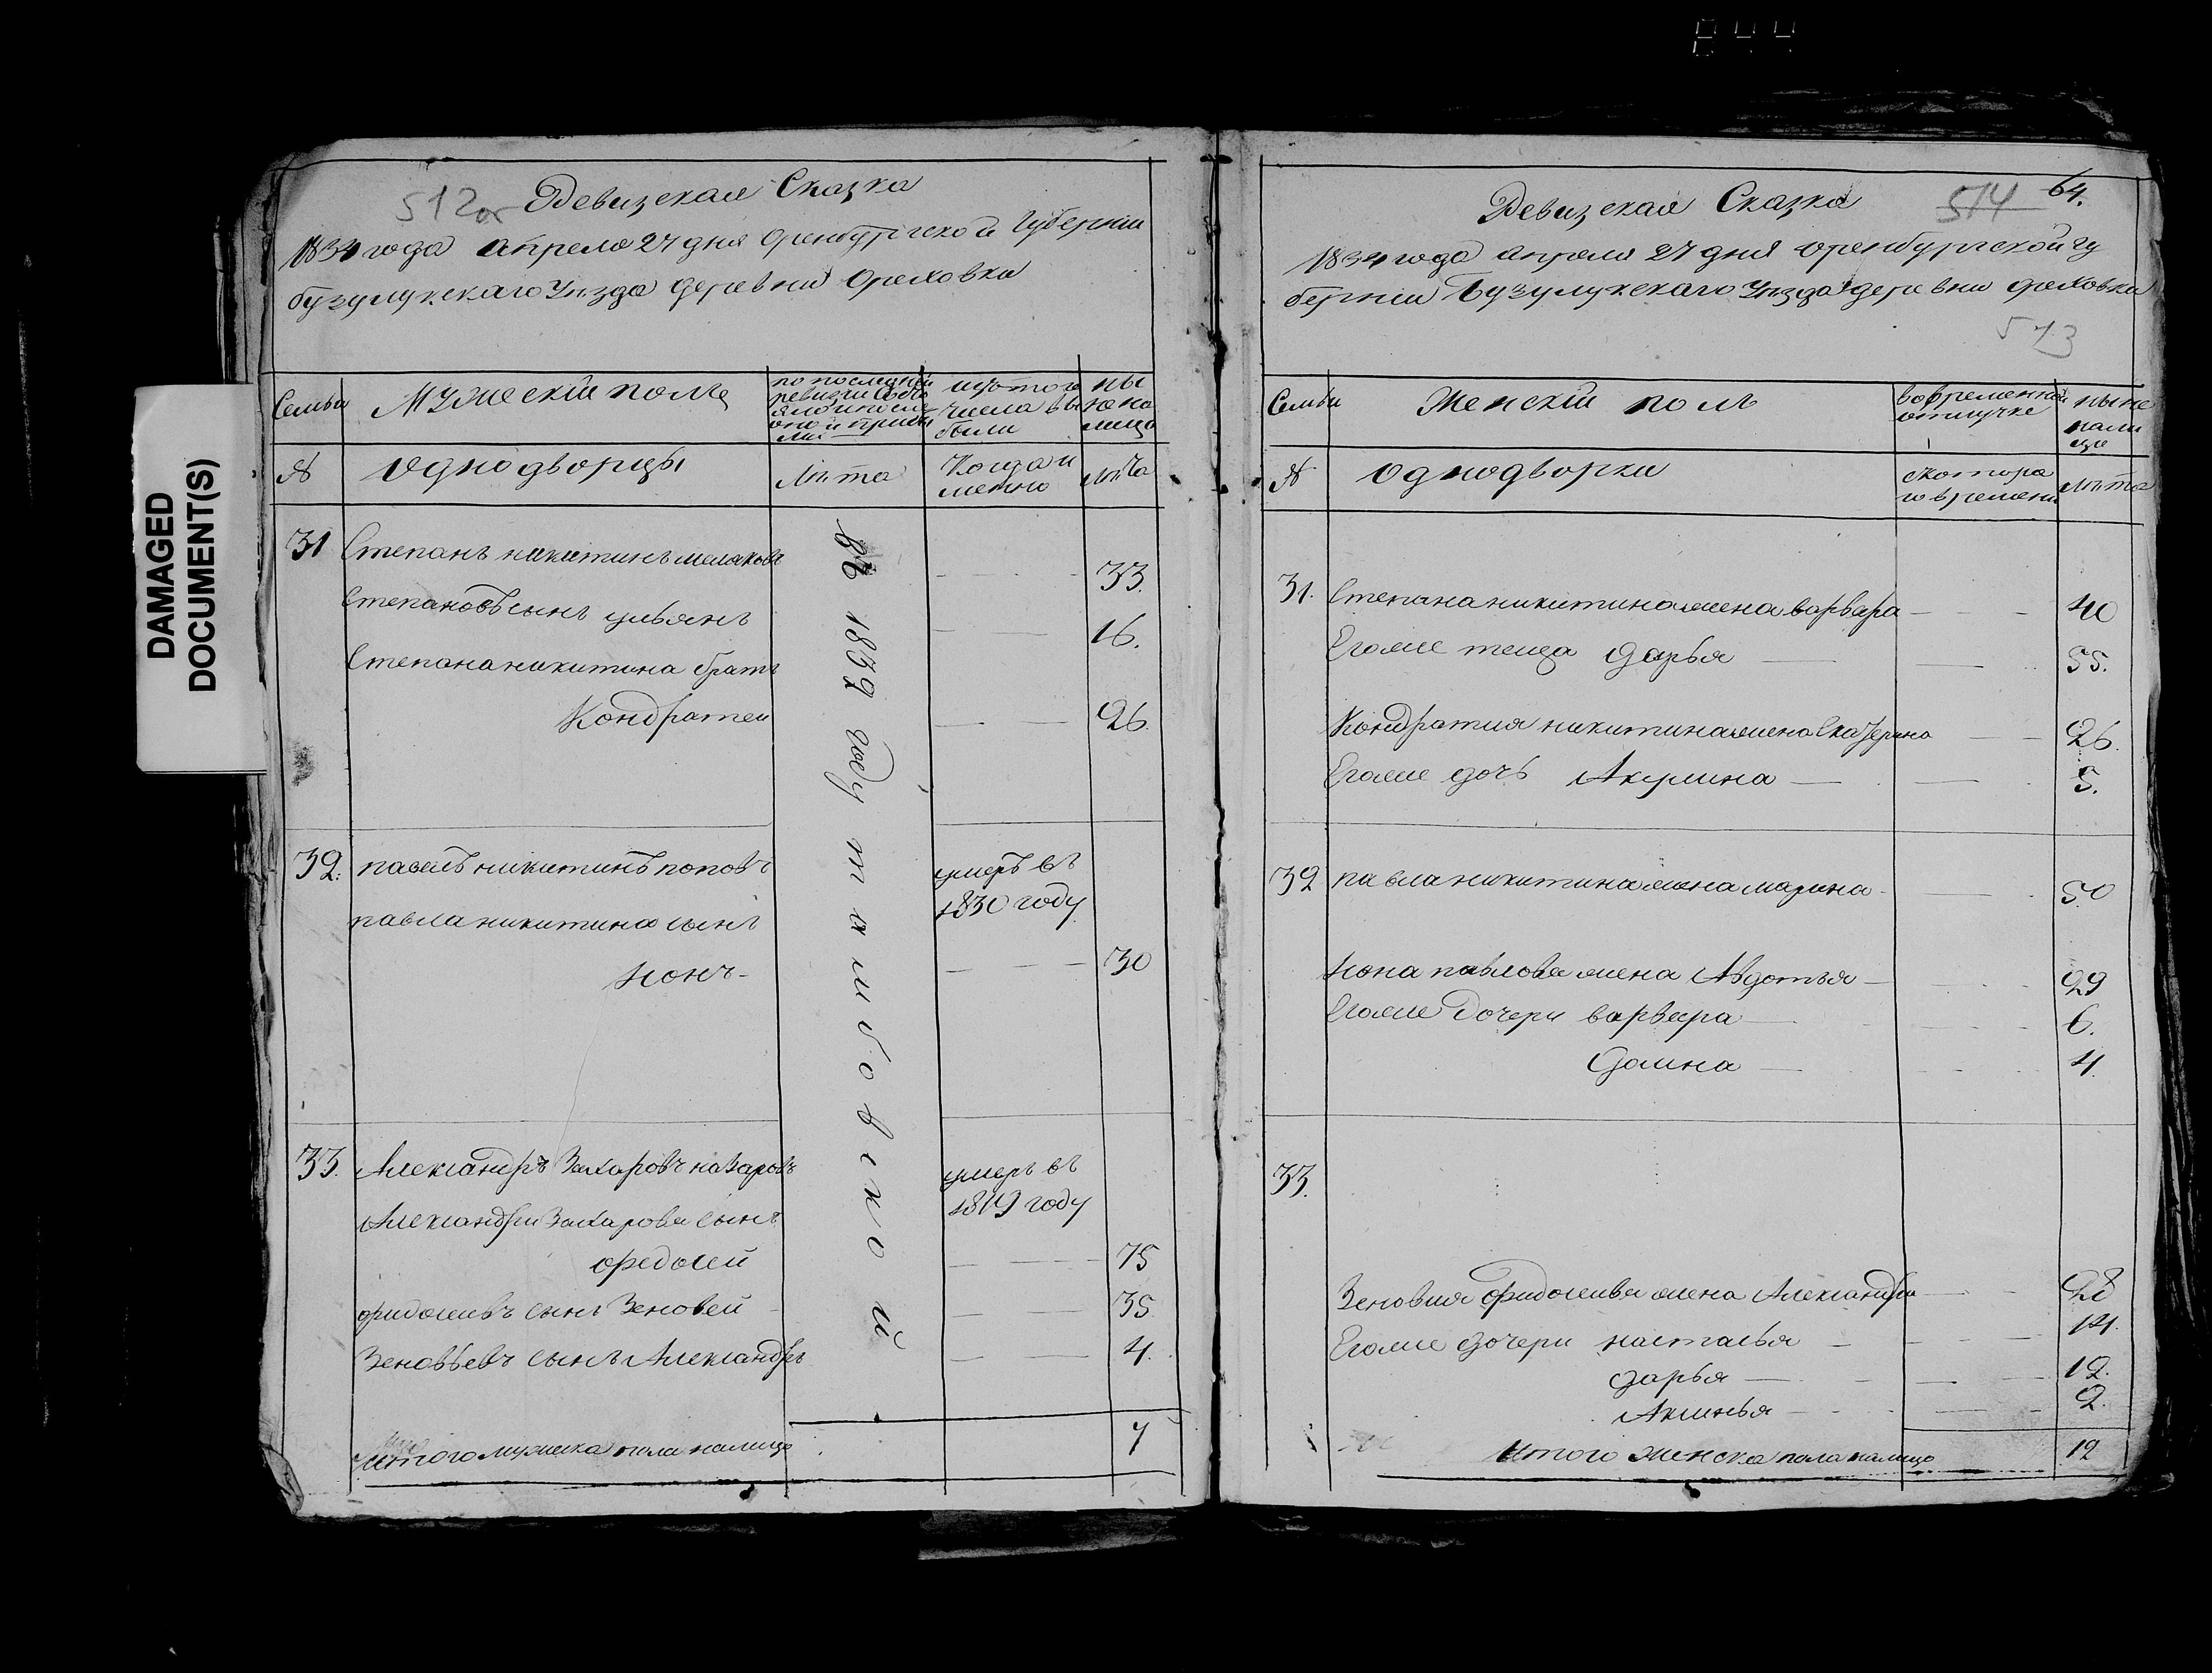 844
DAMAGED
DOCUMENT(S)
512 об
Ревизская Сказка
1834 года апреля 27 дня Оренбургской Губернии
бузулукскаго Уѣзда деревни Ореховки
Семьи
Мужескій полъ
по последней
ревизии состо
яло и после
оно и прибы
ли
изъ того
числа вы
были
ны
не на
лицо
№
Однодворцы
Лѣта
Когда и
менно
Лѣта
31 Степанъ никитинъ малаховъ 33.
Степановъ сынъ ульянъ 16.
Степана никитина братъ
Кондратеи 26
32. павелъ никитинъ поповъ умеръ въ
1830 году
павла никитина сынъ
Ионъ 30
33. Александръ Захаровъ назаровъ умеръ въ
1819 году
Александра Захарова сынъ
Федосей 75
Фидосеивъ сынъ Зеновей 35
Зеновьевъ сынъ Александръ 4.
въ 1832 году тамбовской
Итого мужска пола налицо 7
514 64.
Ревизская Сказка
1834 года апреля 27 дня Оренбургской гу
бернии Бузулукскаго Уѣзда деревни Ореховки
513
Семьи
Женскій полъ
во временной
отлучке
ныне
нали
цо
№
Однодворки
с котора
го времени
Лѣта
31. Степана никитина жена варвара 40
Егоже теща дарья 55.
Кондратия никитина жена Екатерина 26.
Егоже дочь Акулина 5.
32 павла никитина жена марина 50
Иона павлова жена Авдотья 29
Егоже дочери варвара 6.
Домна 4
33.
Зеновия Фидосеива жена Александра 28
Егоже дочери насталья 14.
дарья 12.
Аксинья 2.
Итого женска пола налицо 12